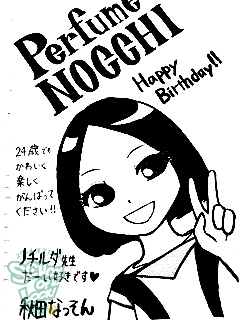 Perfume
NOCCHI
Happy
Birthday!!
24歳でも
かわいく
楽しく
がんばって
ください!!
ノチルダ先生
だーい好きです♥
秋田なっそん